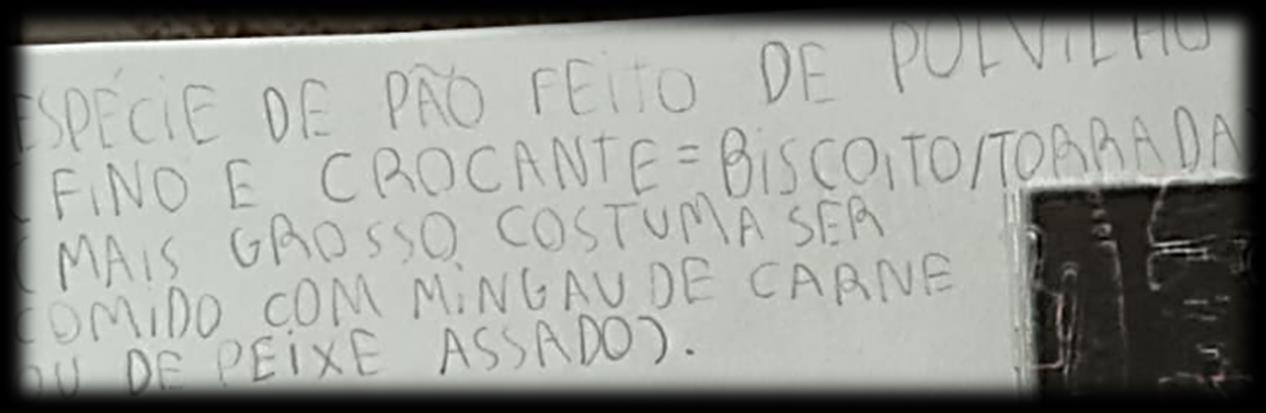 ESPÉCIE DE PÃO FEITO DE POLVILHO
(FINO E CROCANTE = BISCOITO/TORRADA)
(MAIS GROSSO COSTUMA SER
COMIDO COM MINGAU DE CARNE
OU DE PEIXE ASSADO).